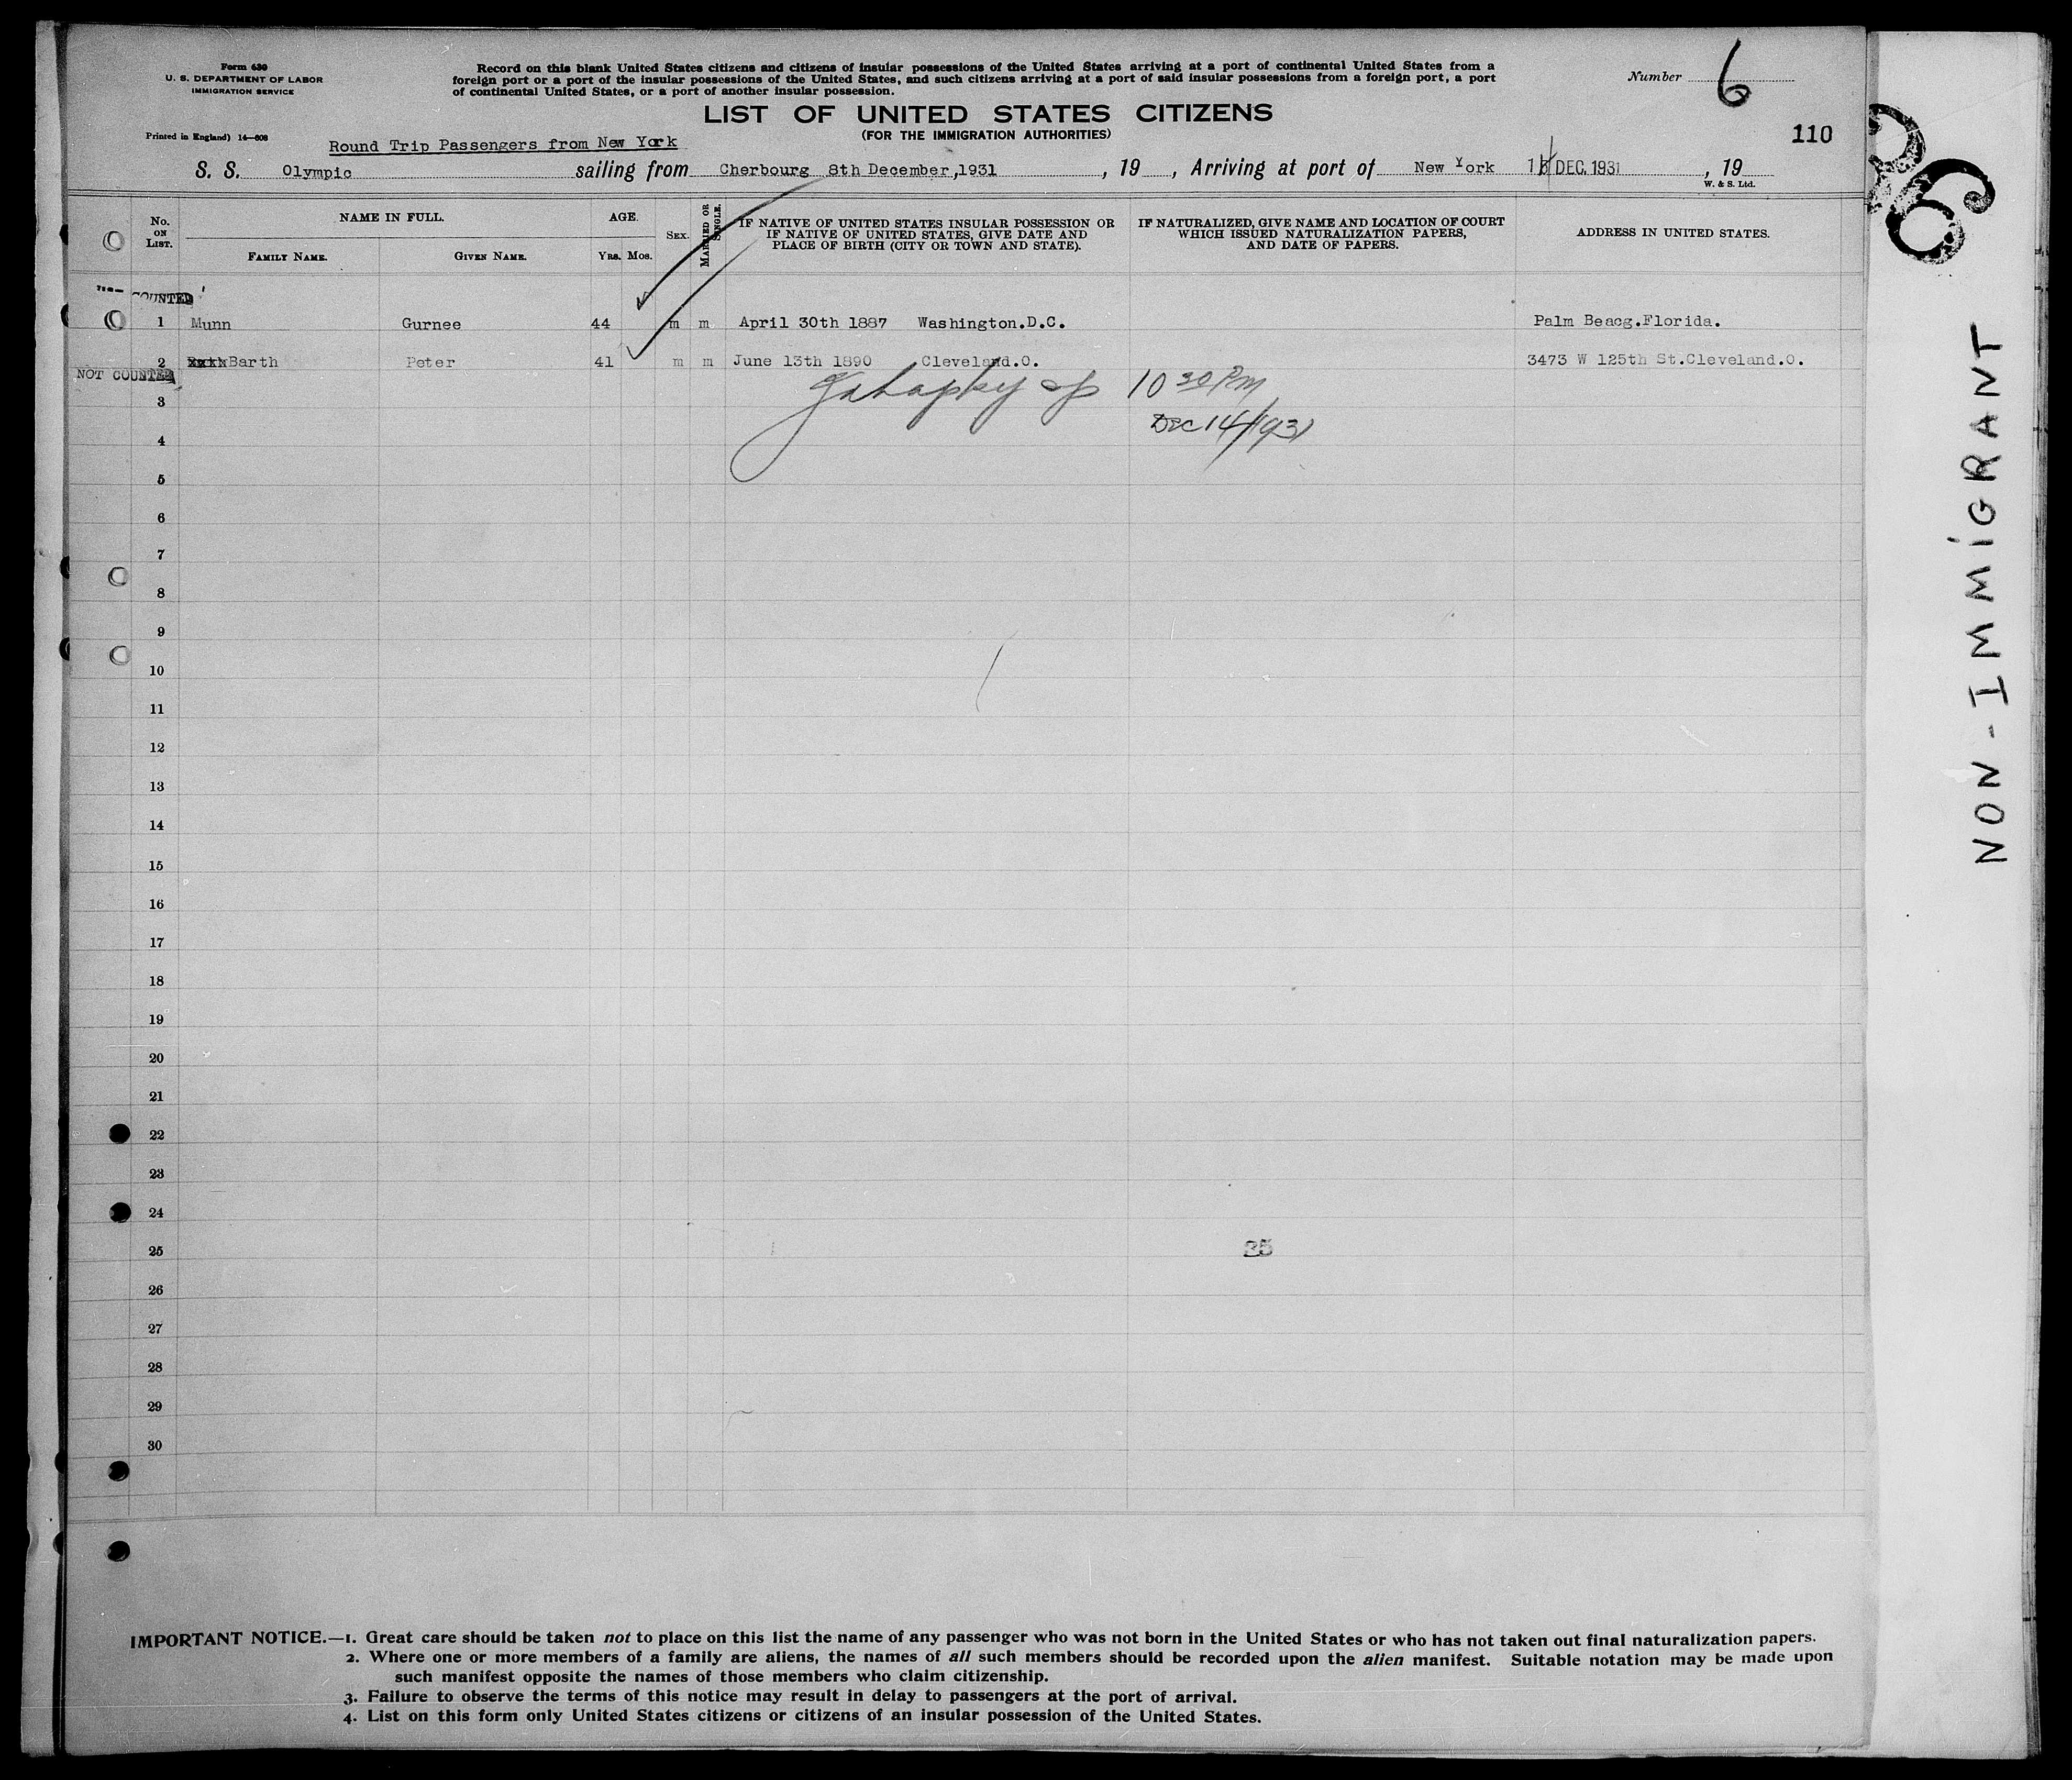 Form 630
U. S. DEPARTMENT OF LABOR
IMMIGRATION SERVICE
Record on this blank United States citizens and citizens of insular possessions of the United States arriving at a port of continental United States from a
foreign port or a port of the insular possessions of the United States, and such citizens arriving at a port of said insular possessions from a foreign port, a port
of continental United States, or a port of another insular possession.
Number 6
LIST OF UNITED STATES CITIZENS
(FOR THE IMMIGRATION AUTHORITIES)
110
Printed in England) 14—608
Round Trip Passengers from New York
S. S. Olympic sailing from Cherbourg 8th December,1931, 19 , Arriving at port of New York DEC. 1931, 19
W. & S. Ltd.
No. ON LIST.
NAME IN FULL.
FAMILY NAME. GIVEN NAME.
AGE.
YRS. MOS.
SEX.
MARRIED OR SINGLE.
IF NATIVE OF UNITED STATES INSULAR POSSESSION OR
IF NATIVE OF UNITED STATES, GIVE DATE AND
PLACE OF BIRTH (CITY OR TOWN AND STATE).
IF NATURALIZED, GIVE NAME AND LOCATION OF COURT
WHICH ISSUED NATURALIZATION PAPERS,
AND DATE OF PAPERS.
ADDRESS IN UNITED STATES.
COUNTED
1 Munn Gurnee 44 m m April 30th 1887 Washington.D.C. Palm Beacg.Florida.
2 Barth Peter 41 m m June 13th 1890 Cleveland.O. 3473 W 125th St.Cleveland.O.
NOT COUNTED
10 30 Pm
3
Dec 14/1931
4
5
6
7
8
9
10
11
12
13
14
15
16
17
18
19
20
21
22
23
24
25
26
27
28
29
30
IMPORTANT NOTICE.—1. Great care should be taken not to place on this list the name of any passenger who was not born in the United States or who has not taken out final naturalization papers.
2. Where one or more members of a family are aliens, the names of all such members should be recorded upon the alien manifest. Suitable notation may be made upon
such manifest opposite the names of those members who claim citizenship.
3. Failure to observe the terms of this notice may result in delay to passengers at the port of arrival.
4. List on this form only United States citizens or citizens of an insular possession of the United States.
NON-IMMIGRANT